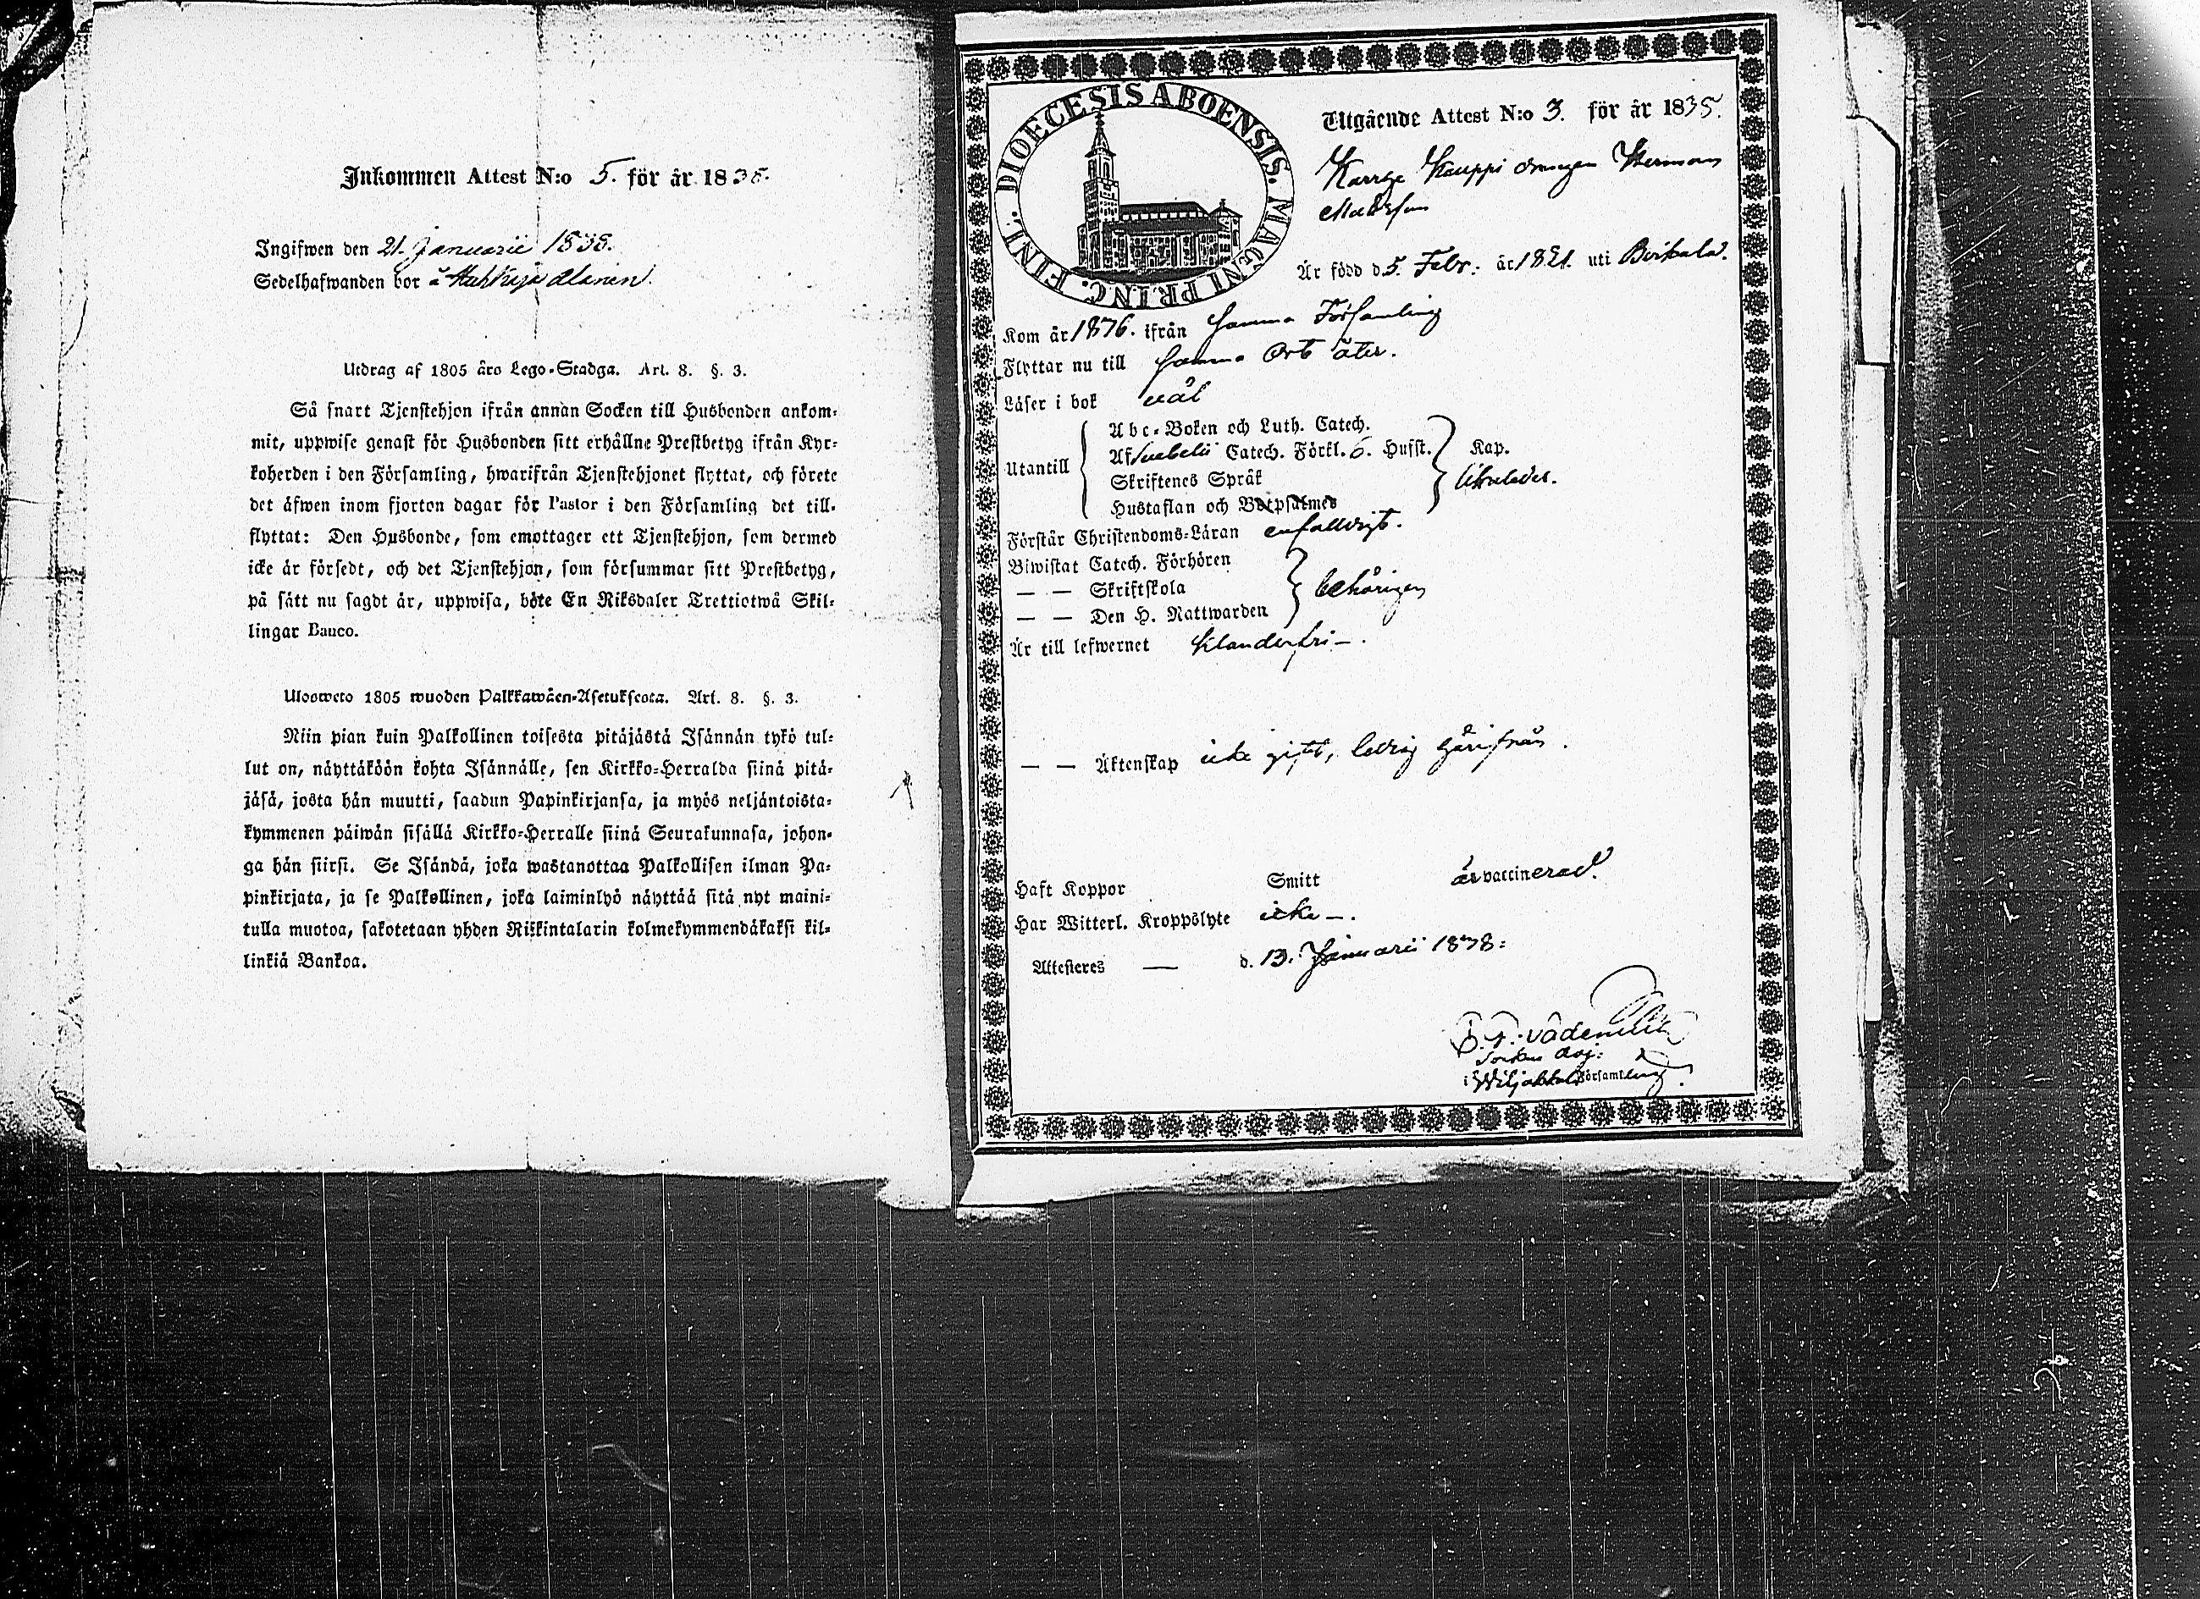 Inkommen Attest N:o 5. för år 1838.
Ingifwen den 21. Januarii 1838.
Sedelhafwanden bor å
Utdrag af 1805 års Lego-Stadga. Art. 8. §. 3.
Så snart Tjenstehjon ifrån annan Socken till Husbonden ankom-
mit, uppwise genast för Husbonden sitt erhållne Prestbetyg ifrån Kyr-
koherden i den Församling, hwarifrån Tjenstehjonet flyttat, och förete
det äfwen inom fjorton dagar för Pastor i den Församling det till-
flyttat: Den Husbonde, som emottager ett Tjenstehjon, som dermed
icke är försedt, och det Tjenstehjon, som försummar sitt Prestbetyg,
på sätt nu sagdt är, uppwisa, böte En Riksdaler Trettiotwå Skil-
lingar Banco.
Ulosweto 1805 wuoden Palkkawäen-Asetuksesta. Art. 8. §. 3.
Niin pian kuin Palkollinen toisesta pitäjästä Isännän tykö tul-
lut on, näyttäköön kohta Isännälle, sen Kirkko-Herralda siinä pitä-
jäsä, josta hän muutti, saadun Papinkirjansa, ja myös neljäntoista-
kymmenen päiwän sisällä Kirkko-Herralle siinä Seurakunnasa, johon-
ga hän siirsi. Se Isändä, joka wastanottaa Palkollisen ilman Pa-
pinkirjata, ja se Palkollinen, joka laiminlyö näyttää sitä nyt maini-
tulla muotoa, sakotetaan yhden Riikintalarin kolmekymmendäkaksi kil-
linkiä Bankoa.
DIOECESIS ABOENSIS. MAGNI PRINC. FINL.
Utgående Attest N:o 3. för år 1835.
Kauppi drengen Herman
Är född d. 5. Febr. år 1821. uti Birkala.
Kom år 1836. ifrån samma Församling
Flyttar nu till samma Ort åter.
Läser i bok väl
Utantill
Abc-Boken och Luth. Catech.
Af Svebelii Catech. Förkl. 6. Husst. Kap.
Skriftenes Språk
Hustaflan och Botpsalmer
Förstår Christendoms-Läran enfalldigt.
Biwistat Catech. Förhören
— — Skriftskola behörigen
— — Den H. Nattwarden
Är till lefwernet klanderfri —.
— — Äktenskap icke gift, ledig härifrån.
Haft Koppor Smitt är vaccinerad.
Har Witterl. Kroppslyte icke —.
Attesteres — d. 13. Januarii 1838:
Sockne Adj:
i Wiljakkala Församling.